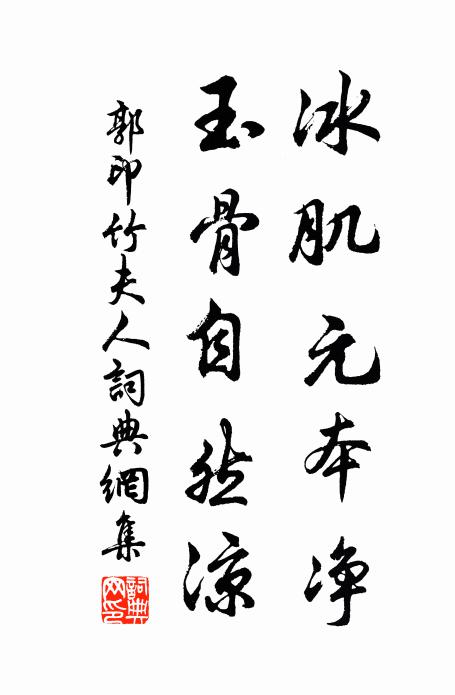 冰肌元本净
玉骨自然凉
郭印竹夫人詞典網集
詞典网印